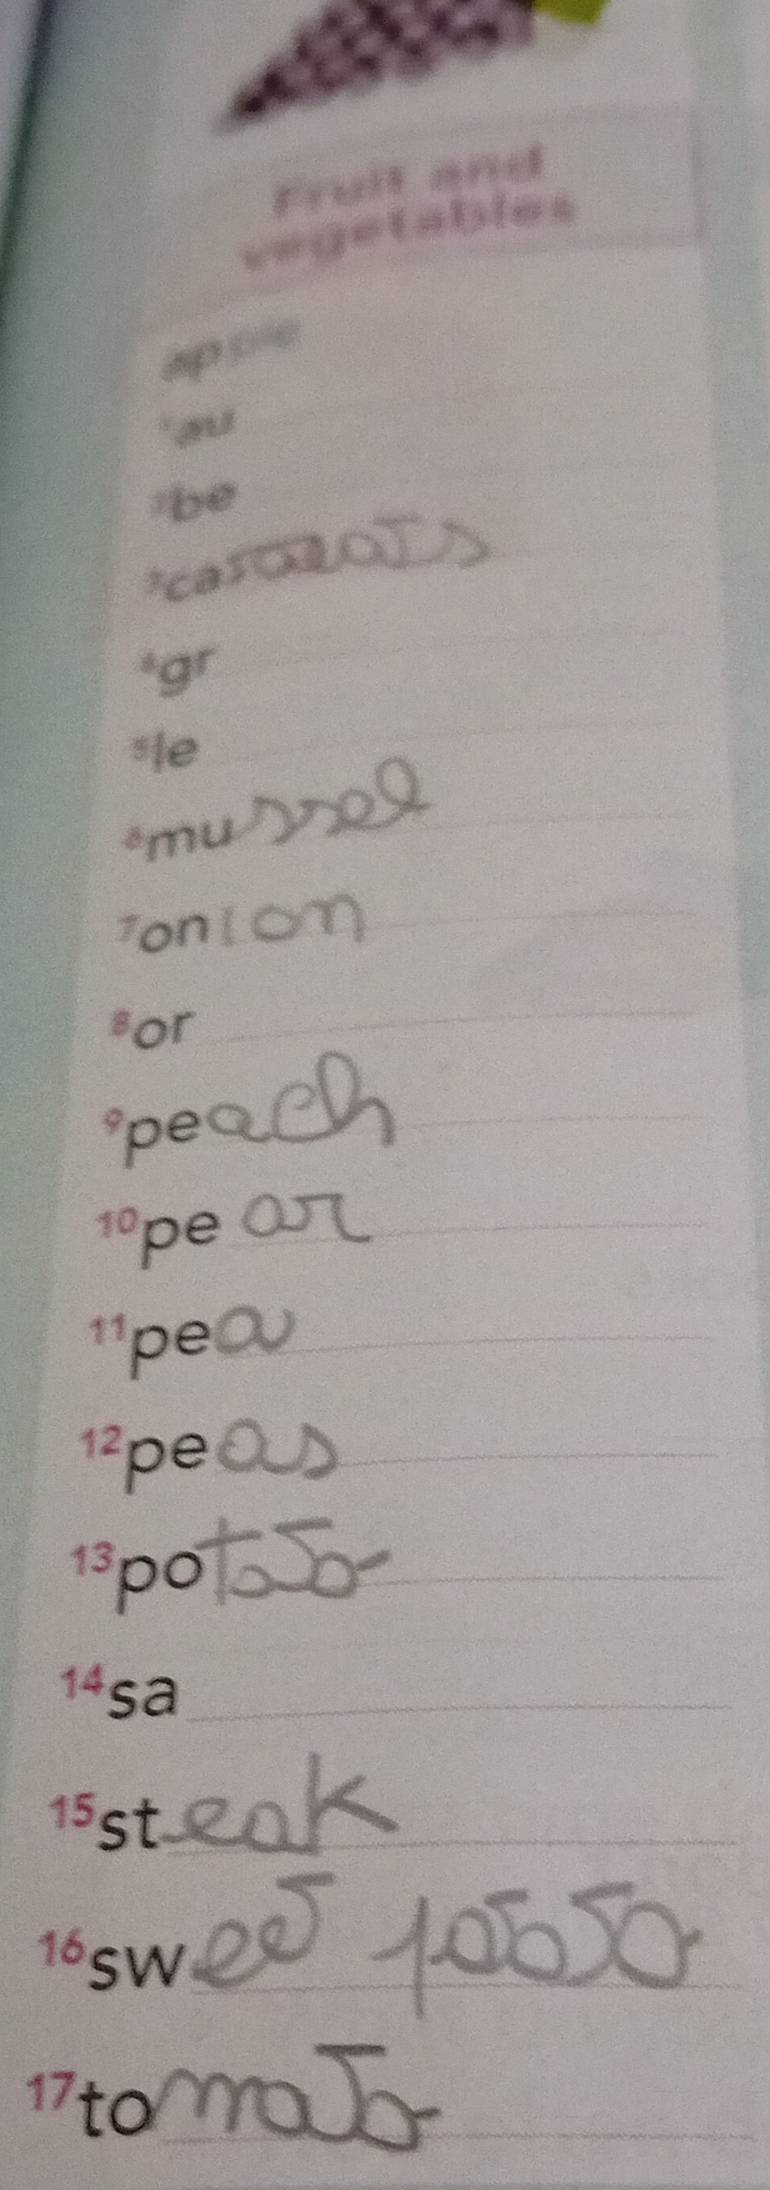 Fruit and
vegetables
apple
¹au
²be
³ca
⁴gr
⁵le
⁶mussel
⁷onion
⁸or
⁹peach
¹⁰pear
¹¹pea
¹²peas
¹³potato
¹⁴sa
¹⁵steak
¹⁶sweet potato
¹⁷tomato